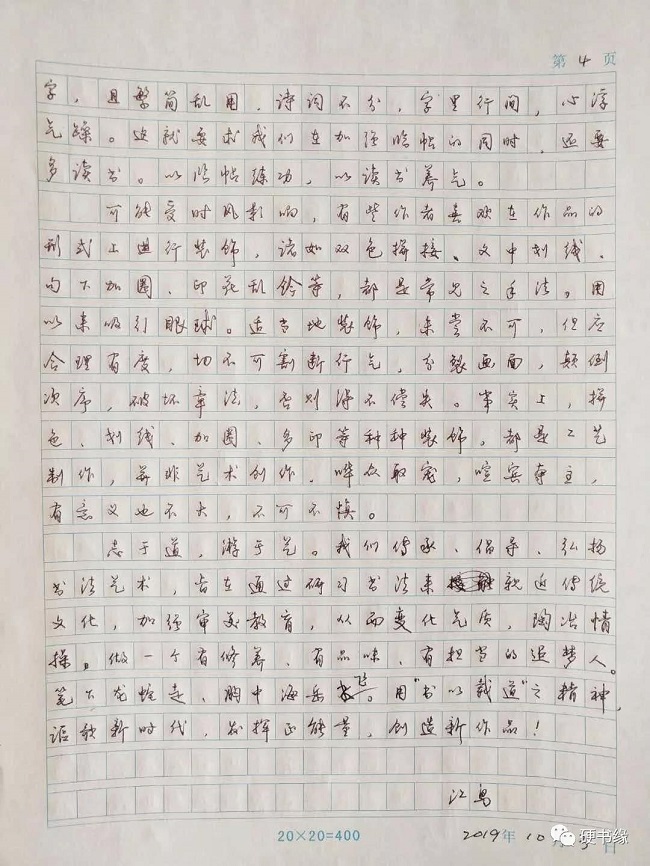 第 4 页
字，且繁简乱用，诗词不分，字里行间，心浮
气躁。这就要求我们在加强临帖的同时，还要
多读书。以临帖练功，以读书养气。
可能受时风影响，有些作者喜欢在作品的
形式上进行装饰，诸如双色拼接、文中划线、
句下加圈、印花乱钤等，都是常见之手法，用
以来吸引眼球。适当地装饰，未尝不可，但应
合理有度，切不可割断行气，分裂画面，颠倒
次序，破坏章法，否则得不偿失。事实上，拼
色、划线、加圈、多印等种种装饰，都是工艺
制作，并非艺术创作，哗众取宠，喧宾夺主，
有意义也不大，不可不慎。
志于道，游于艺。我们传承、倡导、弘扬
书法艺术，旨在通过研习书法来亲近传统
文化，加强审美教育，从而变化气质，陶冶情
操。做一个有修养、有品味、有担当的追梦人。
笔下龙蛇走、胸中海岳飞。用“书以载道”之精神，
讴歌新时代，发挥正能量，创造新作品！
江鸟
20×20=400
2019年 10月 5日
硬书缘